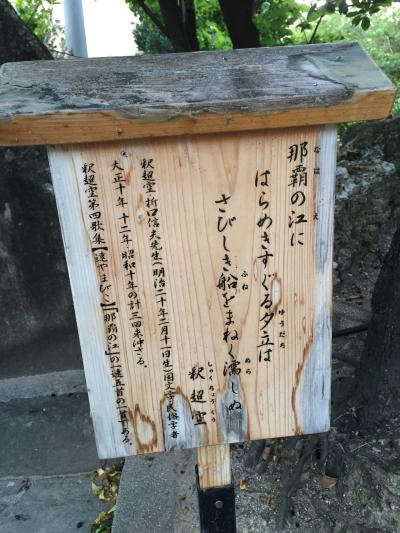 那覇の江に
なはえ
はらめきすぐる夕立は
ゆうだち
さびしき船をまねく濡しぬ
ふね
ぬら
釈迢空
しゃくちょうくう
釈迢空 折口信夫先生(明治二十年二月十一日生)国文学民俗学者
大正十年・十二年・昭和十年の計三回来沖さる。
釈迢空第四歌集【遠やまびこ】「那覇の江」の一連五首の一首である。